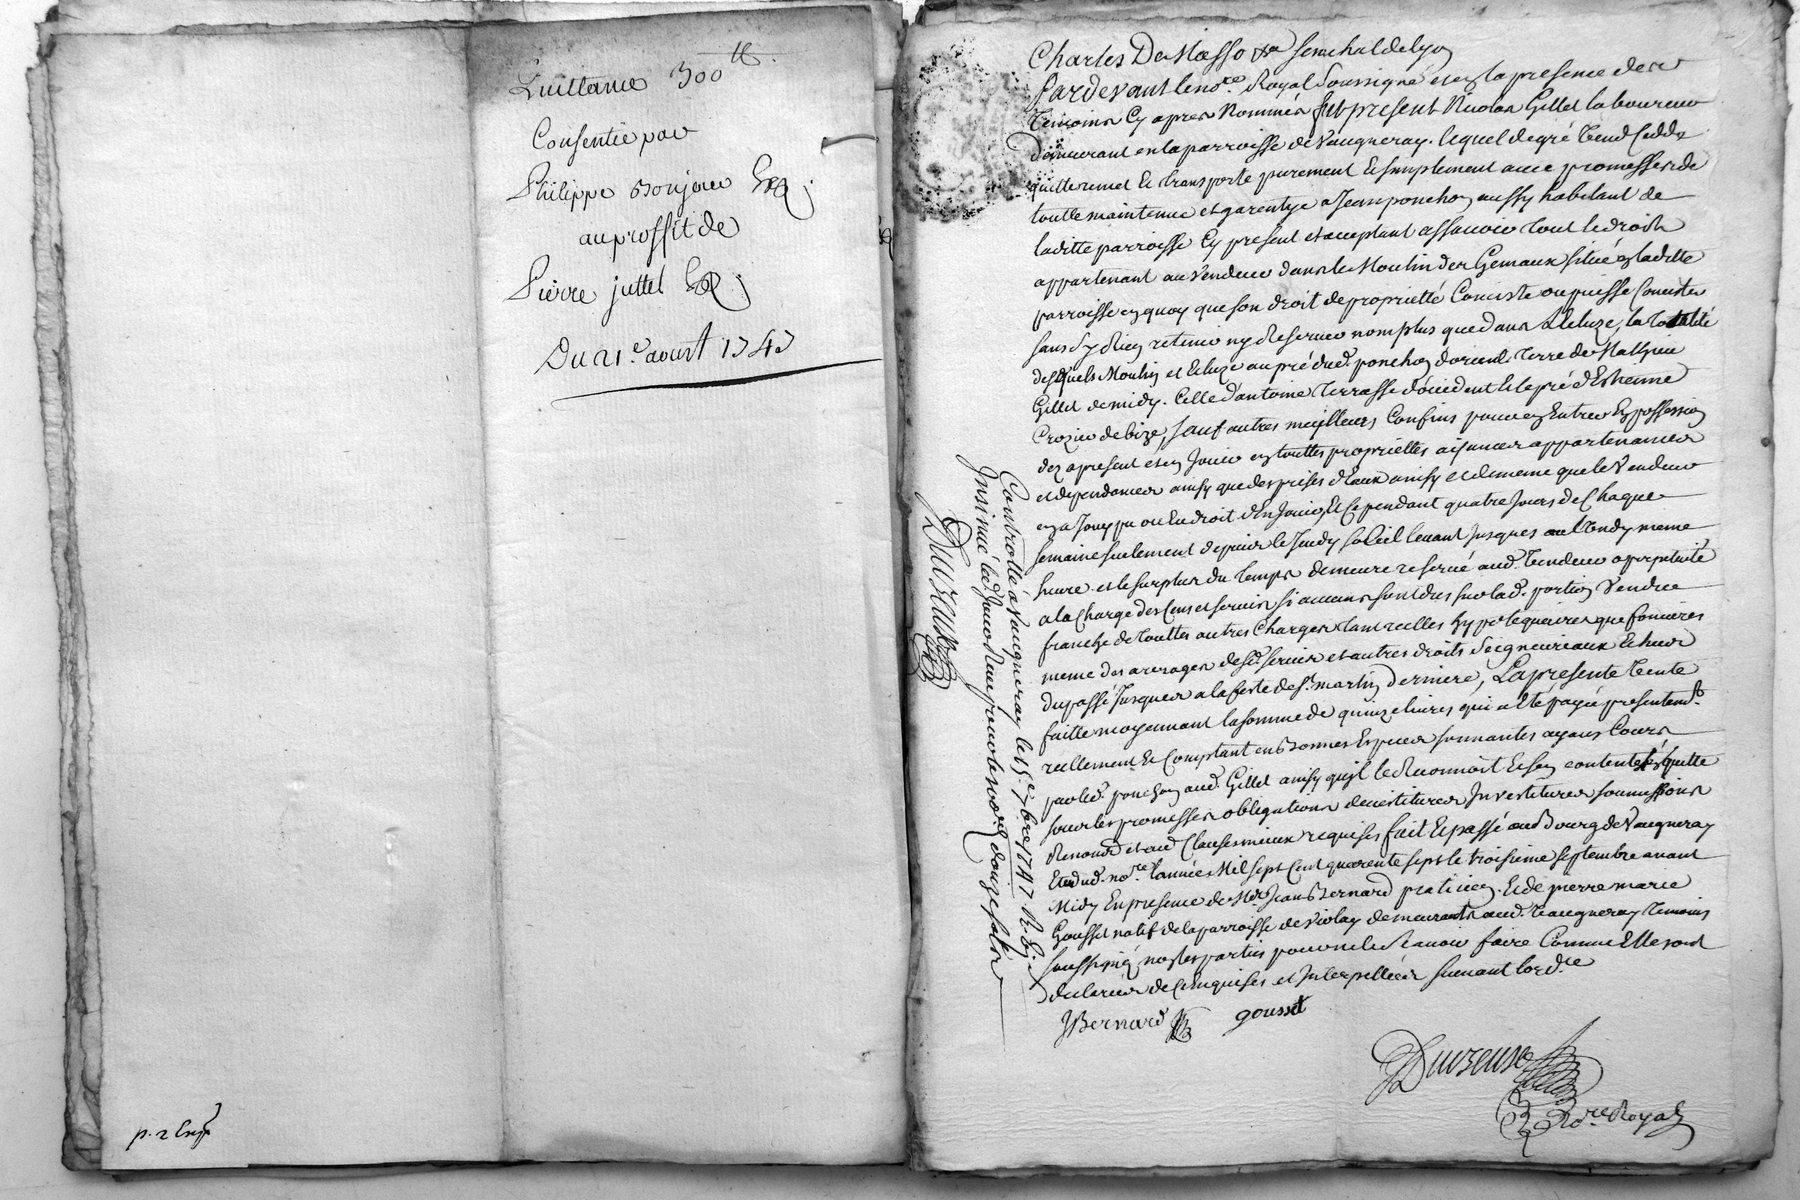 Quittance 300 ₶.
Consentie par
Philippe Bonjour
au proffit de
Pierre juttet
Du 21e aoust 1747
p. 2 Exp.
Charles De Masso &a senechal de lyon
Pardevant le nore. Royal soussigné et en la presence des
temoins cy apres nommés fut present Nicolas Gillet laboureur
demeurant en la parroisse de Vaugneray. lequel de gré vend cedde
quitte remet et transporte purement et simplement avec promesses de
toutte maintenue et garentye a Jean ponchon aussy habitant de
laditte parroisse cy present et acceptant assavoir tout le droit
appartenant au vendeur dans le Moulin des Gemaux situé en laditte
parroisse en quoy que son droit de proprietté consiste ou puisse consister
sans s'y rien retenir ny reserver nom plus que dans l'ecluze, la totalité
desquels Moulin et ecluze au pré dud. ponchon d'orient. terre de Mathieu
Gillet de midy. celle d'antoine terrasse d'occident et le pré d'Estienne
Crozier de bize, sauf autres meilleurs confins pour en entrer en possession
dez a present et en jouir en touttes proprietés aisances appartenances
et dependances ainsy que des prises d'eaux ainsy et de meme que le vendeur
en a jouy pu ou eu droit d'en jouir, et ce pendant quatre jours de chaque
semaine seulement depuis le jeudy soleil levant jusques au lundy meme
heure et le surplus du temps demeure reservé aud. vendeur a perpetuité
a la charge des cens et servis si aucuns sont dus sur lad. portion vendue
franche de touttes autres charges tant reelles hypotequaires que foncieres
meme des arrerages desd. servis et autres droits seigneuriaux echus
du passé jusques a la feste de st. martin derniere, La presente vente
faitte moyennant la somme de quinze livres qui a eté payée presentemt.
reellement et comptant en bonnes especes sonnantes ayant cours
par led. ponchon aud. Gillet ainsy qu'il le reconnoit et s'en contente et quitte
sous les promesses obligations devestitures investitures soumissions
Renonons et aud. clauses mieux requises fait et passé aud. Bourg de Vaugneray
Etude d. nore. l'année Mil sept cent quarente sept le troisieme septembre avant
Midy En presence de Mr Jean Bernard praticien. et de pierre marie
Gousset natif de la parroisse de Violay demeurants aud. Vaugneray temoins
soussignés non les parties pour ne le scavoir faire comme elles ont
declarées de ce enquises et interpellées suivant l'ordce
JBernard gousset
Duvzeuse
Nore. Royal
Controllé a Vaugneray le 15e 7bre 1747. R.
Insinué led. jour
Duvzeuse